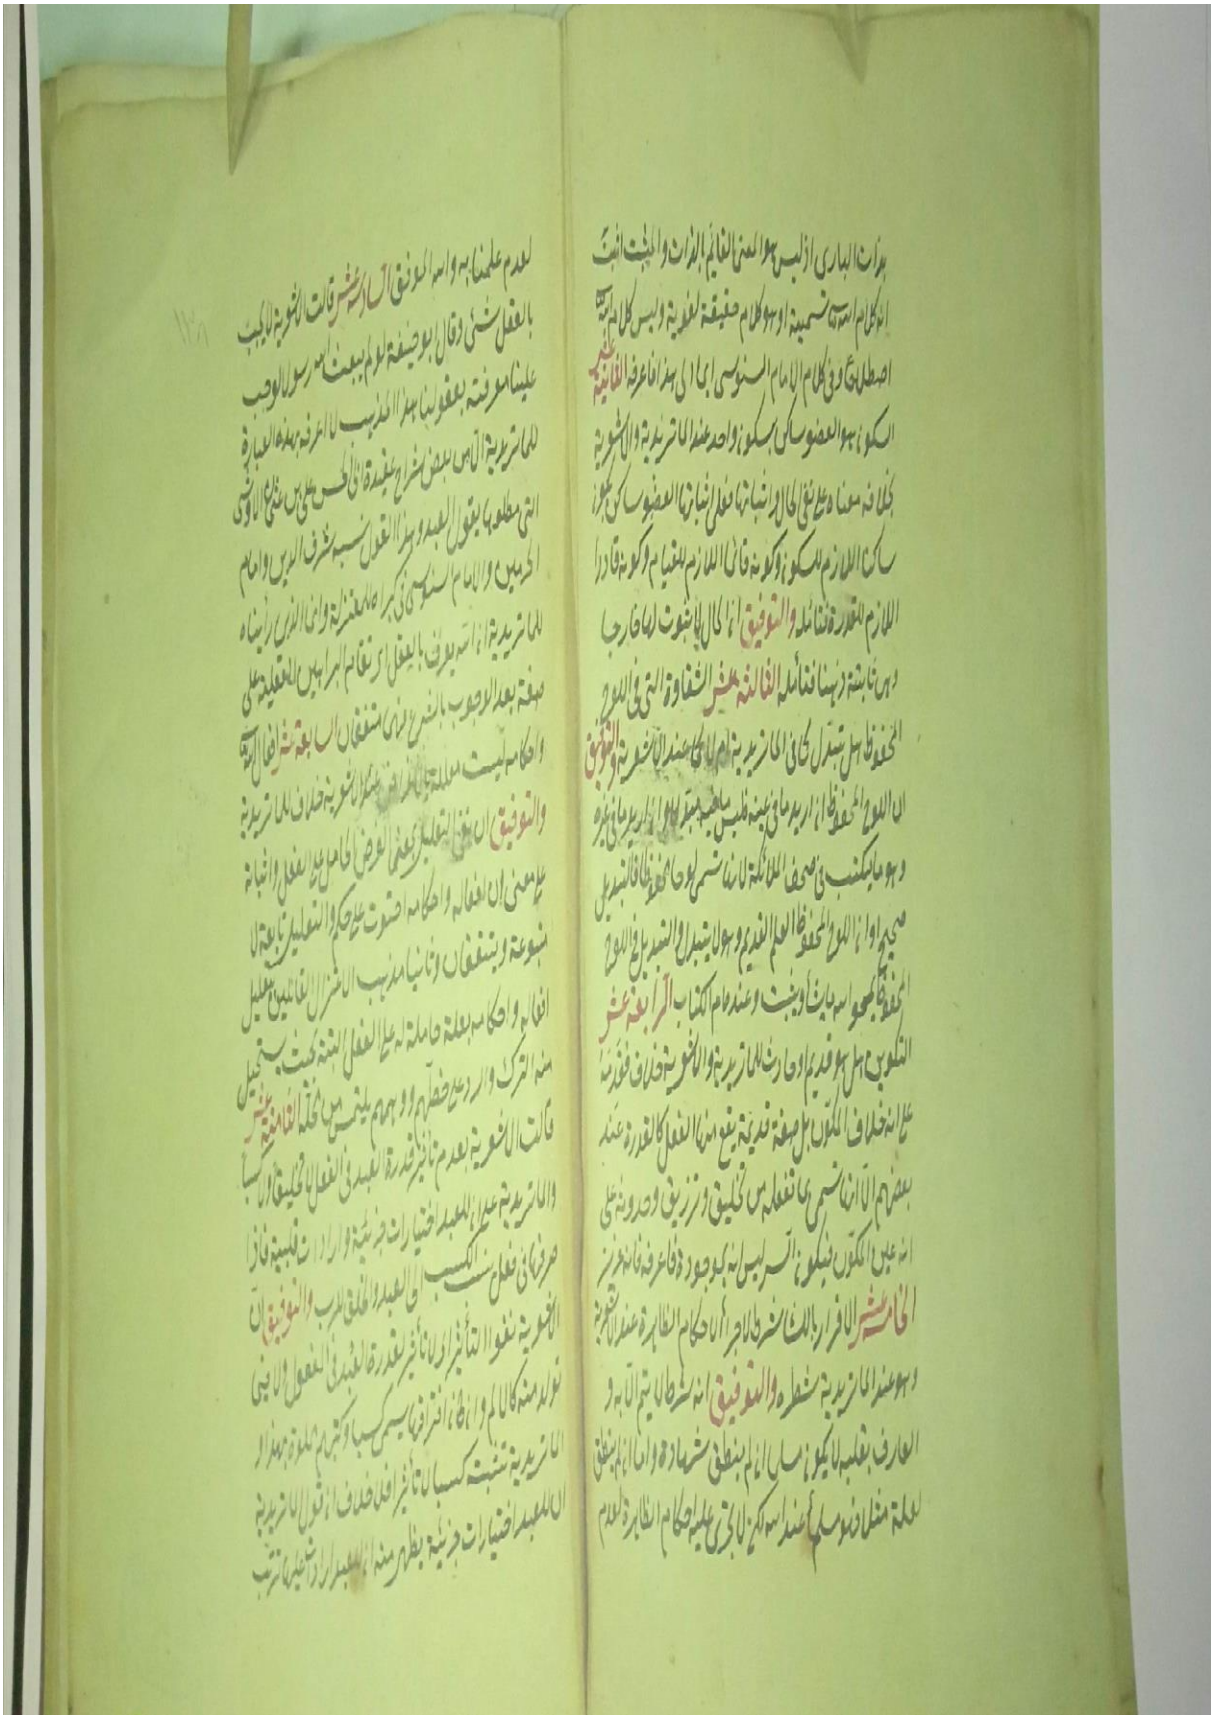 بذات الباري اذ ليس هو المعنى القائم بالذات والمثبت اثبت
انه كلام الله تسمية او هو كلام حقيقة لغوية وليس كلام الله
اصطلاحا وفي كلام الامام السنوسي ايما الى هذا فاعرفه الثانية عشر
السكون هو العضو ساكن بسكون واحد عند الماتريدية والاشعرية
بخلافه معناه على نفي الحال واثباتها فعلى اثباتها العضو ساكن بكون
ساكن اللازم للسكون وكونه قائما اللازم للقيام وكونه قادرا
اللازم للقدرة فتأمله والتوفيق ان الحال لا ثبوت لها خارجا
وهي ثابتة ذهنا فتأمله الثالثة عشر الشقاوة التي في اللوح
المحفوظ هل تتبدل كما في الماتريدية ام لا كما عند الاشعرية والتوفيق
ان اللوح المحفوظ ان اريد ما في عينه فليس ما فيه مبتدلا وان اريد ما في غيره
وهو ما يكتب في صحف الملائكة لانها تسمى لوحا محفوظا فالتبديل
صحيح او ان اللوح المحفوظ العلم القديم وهو لا يتبدل والتبديل في اللوح
المحفوظ يمحو الله ما يشأ ويثبت وعنده ام الكتاب الرابعة عشر
التكوين هل هو قديم او حادث للماتريدية والاشعرية خلاف فقدمه
على انه خلاف المكون بل صفة قديمة يقع منها الفعل كالقدرة عند
بعضهم الا انها تسمى بما تفعله من تخليق وترزيق وحدوثه على
انه عين المكون فيكون السر ليس انه بموجودة فاعرفه فانه عزيز
الخامسة عشر الاقرار باللسان شرط لاجرأ الاحكام الظاهرة عند الاشعرية
وهو عند الماتريدية شطره والتوفيق انه شرط لا يتم الا به و
العارف بقلبه لا يكون مسلما ان لم ينطق بشهادة واما ان لم ينطق
لعلة مثلا فهو مسلم عند الله لكن لا تجرى عليه احكام الظاهرة لعدم
لعدم علمنا به والله الموفق السادسة عشر قالت الاشعرية لا يجب
بالعقل شئ وقال ابو حنيفة لو لم يبعث الله رسولا لوجب
علينا معرفته بعقولنا هذا المذهب لا اعرفه بهذه العبارة
للماتريدية الا من بعض شراح عقيدة ابي الحسن علي بن عثمان الاوشي
التي مطلعها يقول العبد وهذا القول نسبه شرف الدين وامام
الحرمين والامام السنوسي في كبراه للمعتزلة وانما الذي رأيناه
للماتريدية ان الله يعرف بالعقل اي تقام البراهين العقلية على
صفته بعد الوجوب بالشرع فهما متفقان السابعة عشر افعال الله
واحكامه ليست معللة بالاغراض عند الاشعرية خلاف للماتريدية
والتوفيق ان نفي التعليل بمعنى الغرض الحامل على الفعل واثباته
على معنى ان افعاله واحكامه احتوت على حكم والتعليل تابعة لا
متبوعة ويتفقان وثانيا مذهب الاعتزال القائلين بتعليل
افعاله واحكامه بعلة حاملة له على الفعل البتة بحيث يستحيل
منه الترك والرد على خطلهم ووهمهم يلتمس من محله الثامنة عشر
قالت الاشعرية بعدم تأثير قدرة العبد في الفعل لا تخليقا ولا كسبا
والماتريدية على ان للعبد اختيارات جزئية وارادات قلبية فاذا
صرفها في فعل نسب الكسب الى العبد والخلق للرب والتوفيق ان
الاشعرية نفوا التأثير اولا تأثير لقدرة العبد في المفعول ولا فيما
تولد منه كالالم وان كان اقترانها يسمى كسبا وكتبهم مملوءة بهذا و
الماتريدية تثبت كسبا لا تأثيرا فلا خلاف ان قول الماتريدية
ان للعبد اختيارات جزئية يظهر منه ان للعبد ارادات عليها ترتب